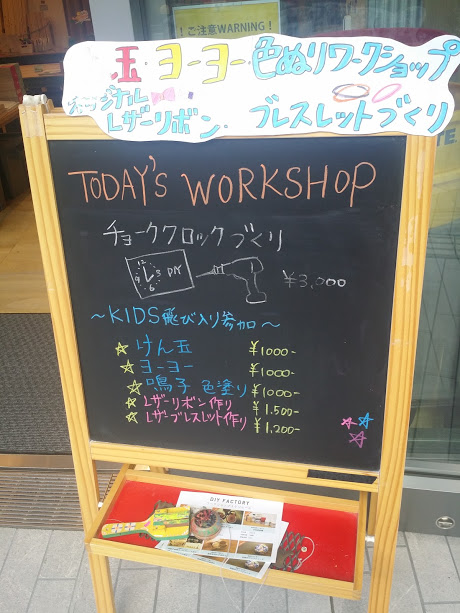 ！ご注意WARNING！
玉・ヨーヨー・色ぬりワークショップ
オリジナル
レザーリボン・ブレスレットづくり
TODAY'S WORKSHOP
チョーククロックづくり
12
9 3
6
DIY
¥3,000
～KIDS飛び入り参加～
☆けん玉 ¥1000-
☆ヨーヨー ¥1000-
☆鳴子 色塗り ¥1000-
☆レザーリボン作り ¥1,500-
☆レザーブレスレット作り ¥1,200-
DIY FACTORY